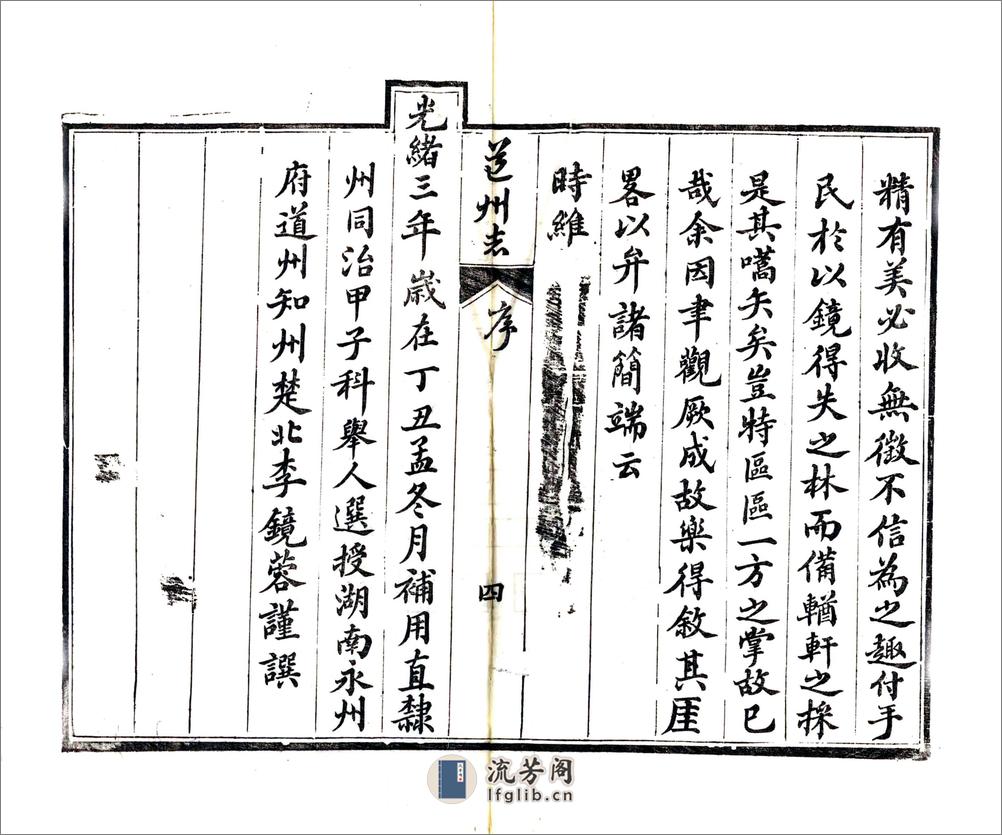 精有美必收無徵不信為之趣付手
民於以鏡得失之林而備輶軒之採
是其嚆矢矣豈特區區一方之掌故已
哉余因聿觀厥成故樂得敘其厓
畧以弁諸簡端云
時維
道州志 序 四
光緒三年歲在丁丑孟冬月補用直隸
州同治甲子科舉人選授湖南永州
府道州知州楚北李鏡蓉謹譔
流芳阁
lfglib.cn